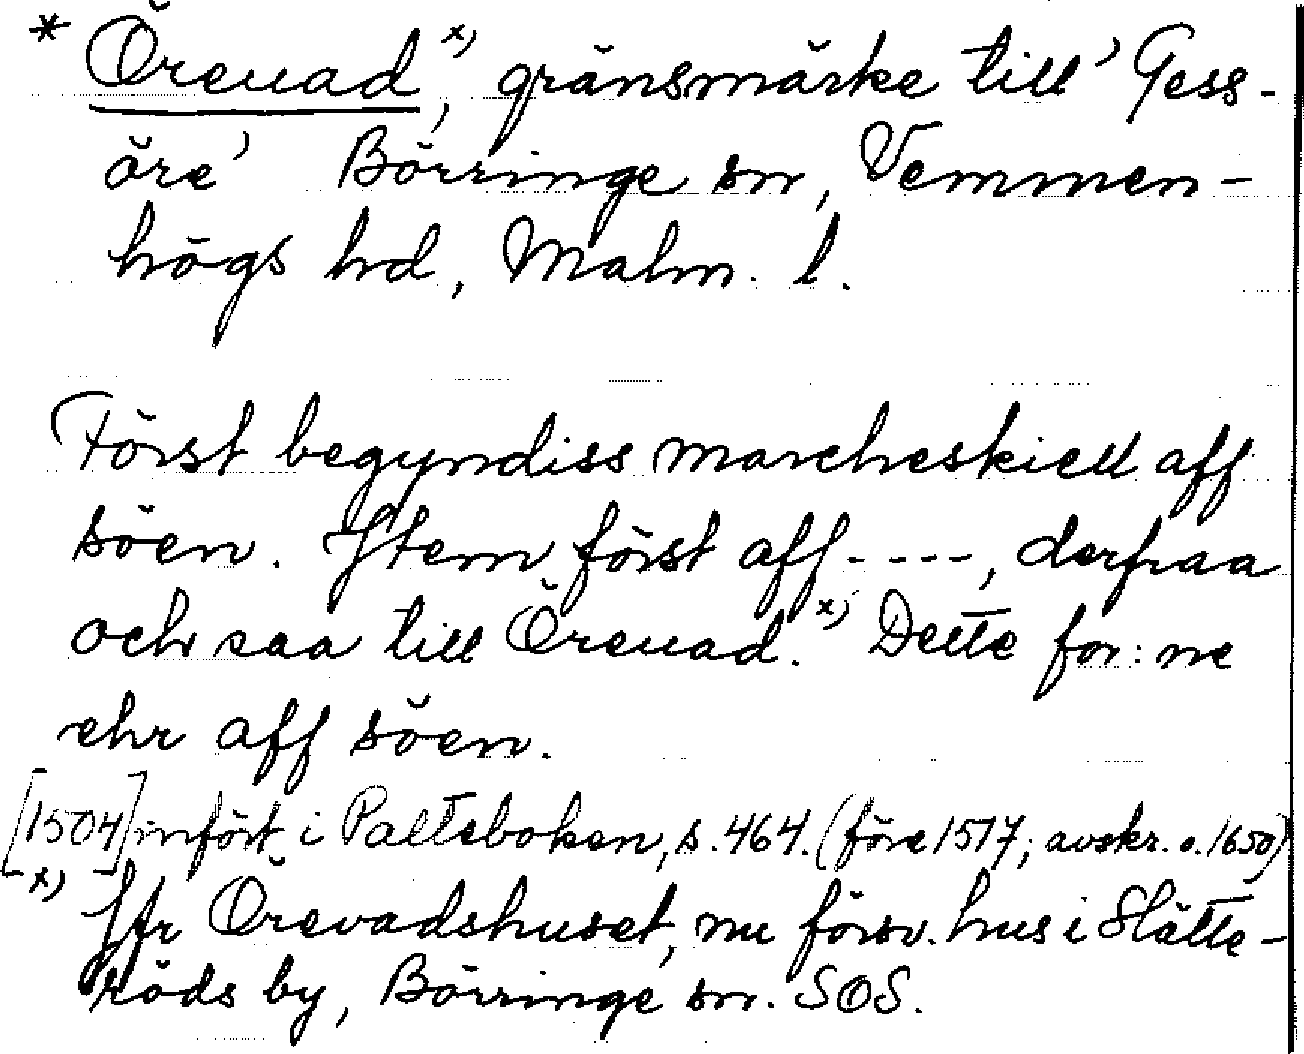 * Öreuad x), gränsmärke till 'Gess-
öre' Börringe sn, Vemmen-
högs hd, Malm. l.
Först begyndiss marcheskiell aff
söen. Item först aff ----, derfraa
och saa till Öreuad. x) Dette for:ne
ehr aff söen.
[1504] infört i Palteboken, s. 464. (före 1517; avskr. o. 1650)
x) Jfr Örevadshuset, nu försv. hus i Slätte-
röds by, Börringe sn. SOS.